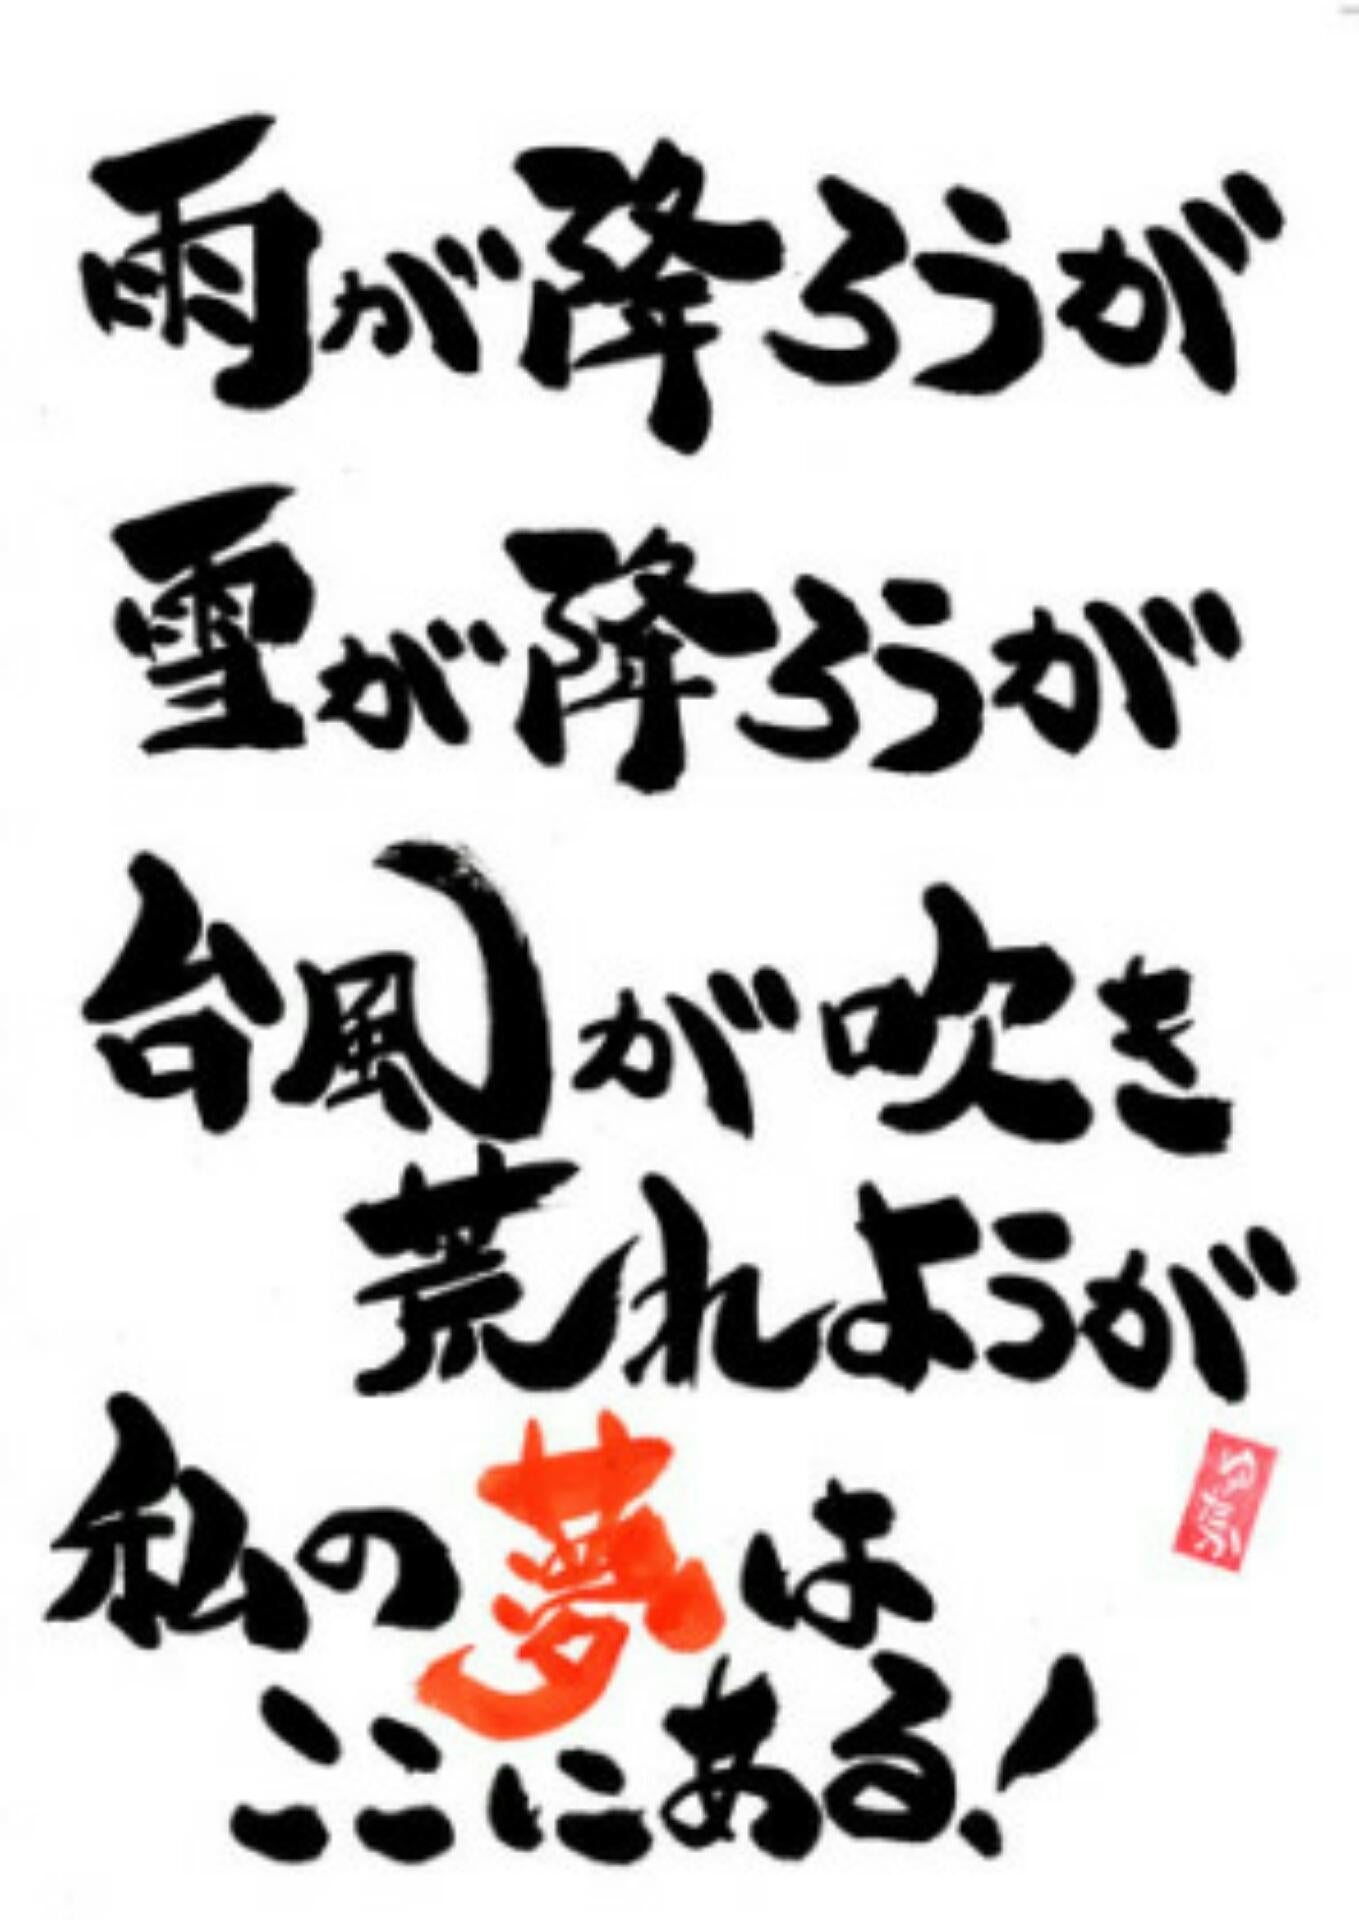 雨が降ろうが
雪が降ろうが
台風が吹き
荒れようが
私の夢は
ここにある!
ゆたか